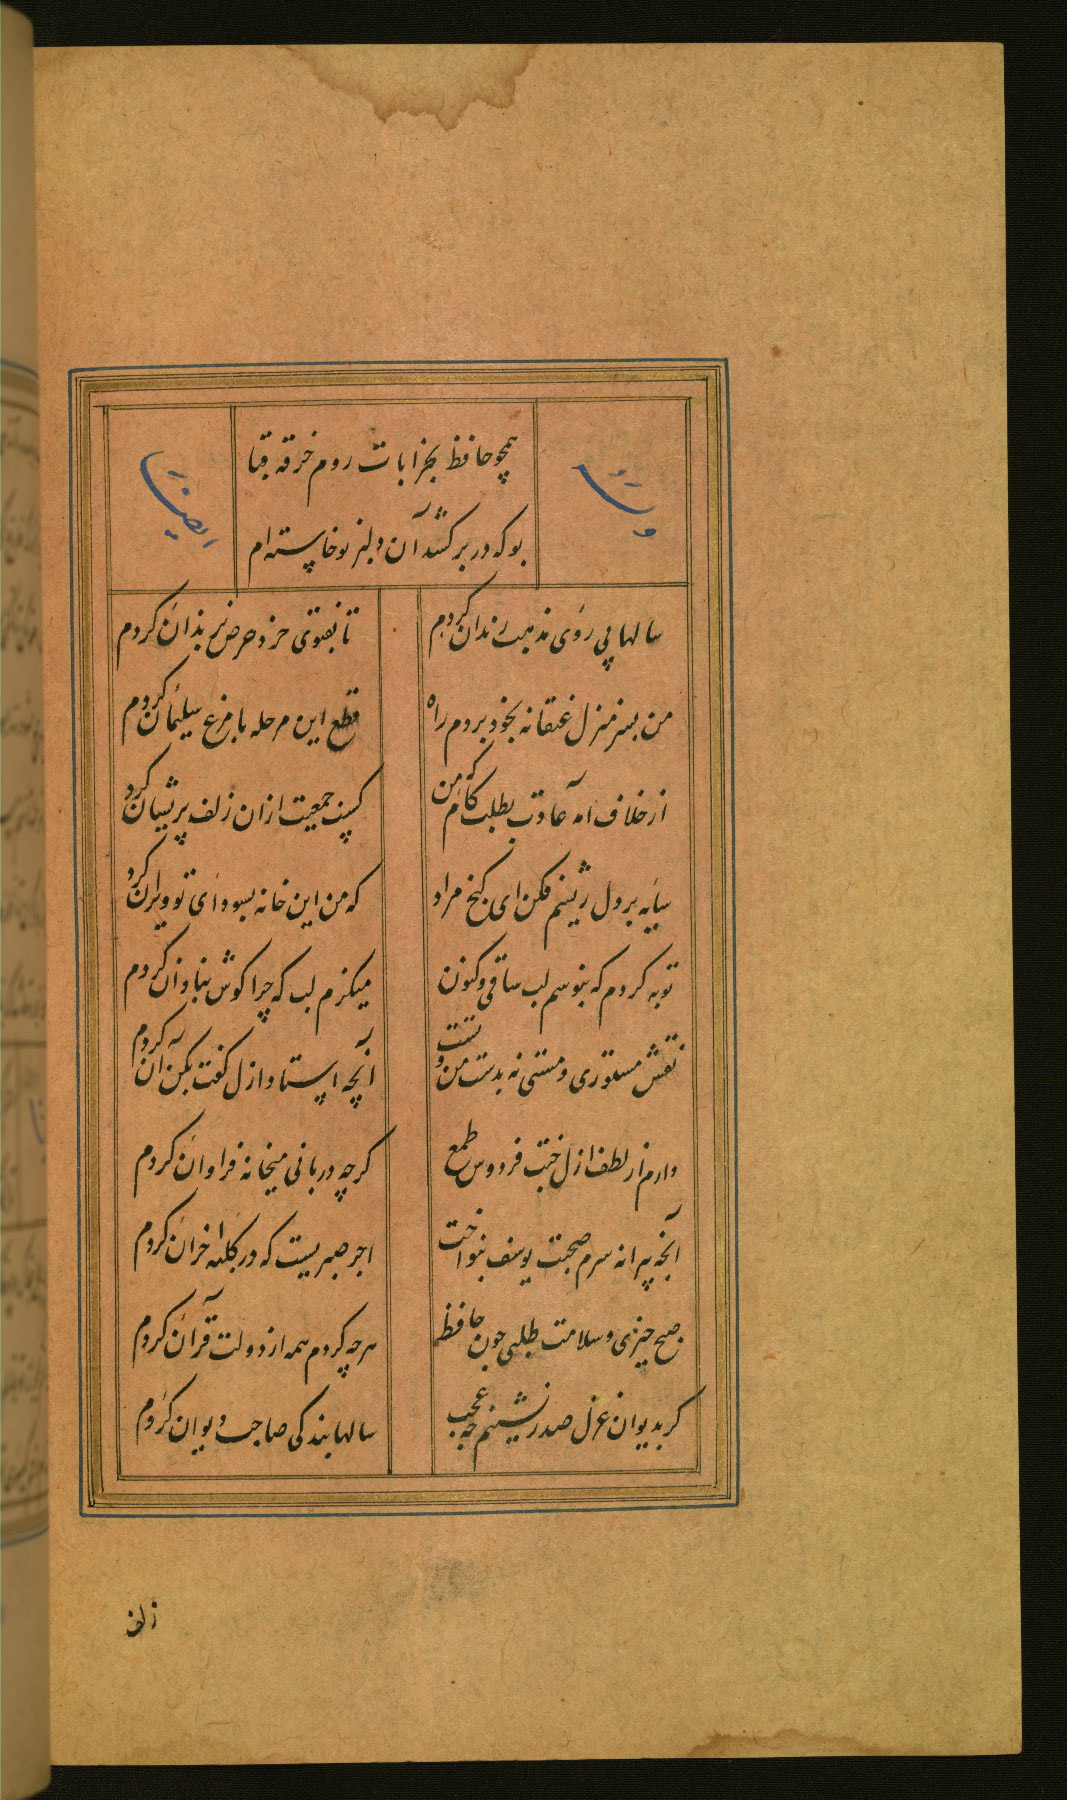 همچو حافظ بخرابات روم خرقه قبا
بو که در بر کشد آن دلبر نوخاسته ام
وله
ایضا
سالها پی روی مذهب رندان کردم
تا بفتوی خرد حرص بزندان کردم
من بسر منزل عنقا نه بخود بردم راه
قطع این مرحله با مرغ سلیمان کردم
از خلاف آمد عادت بطلب کام که من
کسب جمعیت ازان زلف پریشان کردم
سایه بر دل ریشم فکن ای گنج مراد
که من این خانه بسودای تو ویران کردم
توبه کردم که نبوسم لب ساقی و کنون
میگزم لب که چرا گوش بنادان کردم
نقش مستوری و مستی نه بدست من و تست
آنچه استاد ازل گفت بکن آن کردم
دارم از لطف ازل جنت فردوس طمع
گرچه دربانی میخانه فراوان کردم
آنچه پیرانه سرم صحبت یوسف بنواخت
اجر صبریست که در کلبه احزان کردم
صبح خیزی و سلامت طلبی چون حافظ
هرچه کردم همه از دولت قرآن کردم
گر بدیوان غزل صدر نشینم چه عجب
سالها بندگی صاحب دیوان کردم
زلف